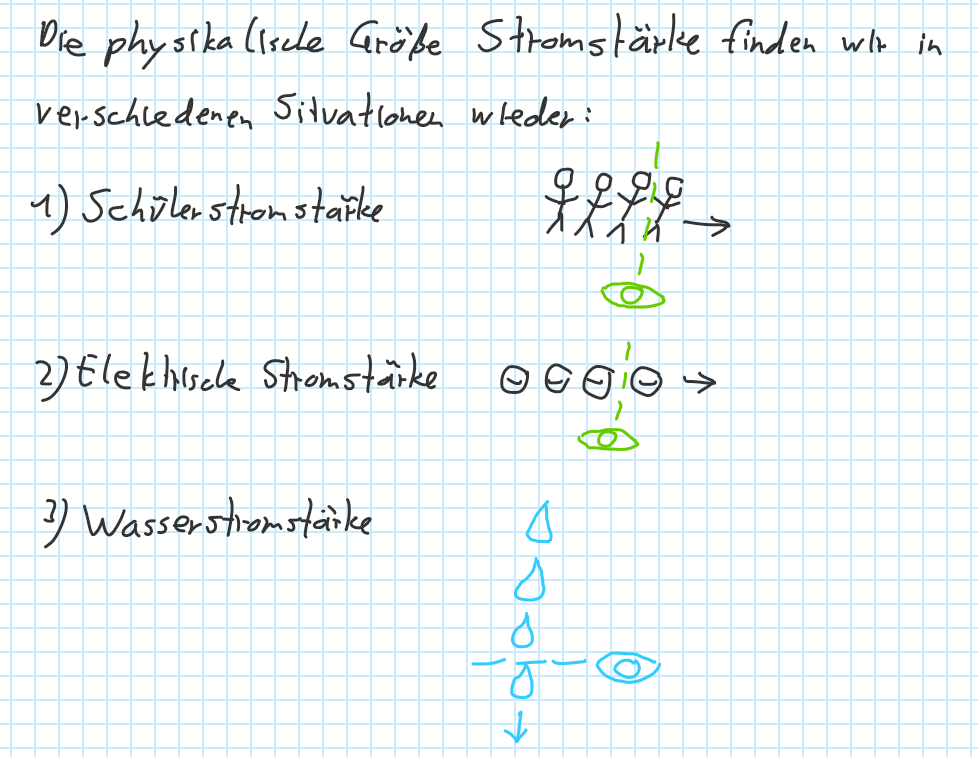 Die physikalische Größe Stromstärke finden wir in
verschiedenen Situationen wieder:
1) Schülerstromstärke
2) Elektrische Stromstärke
3) Wasserstromstärke